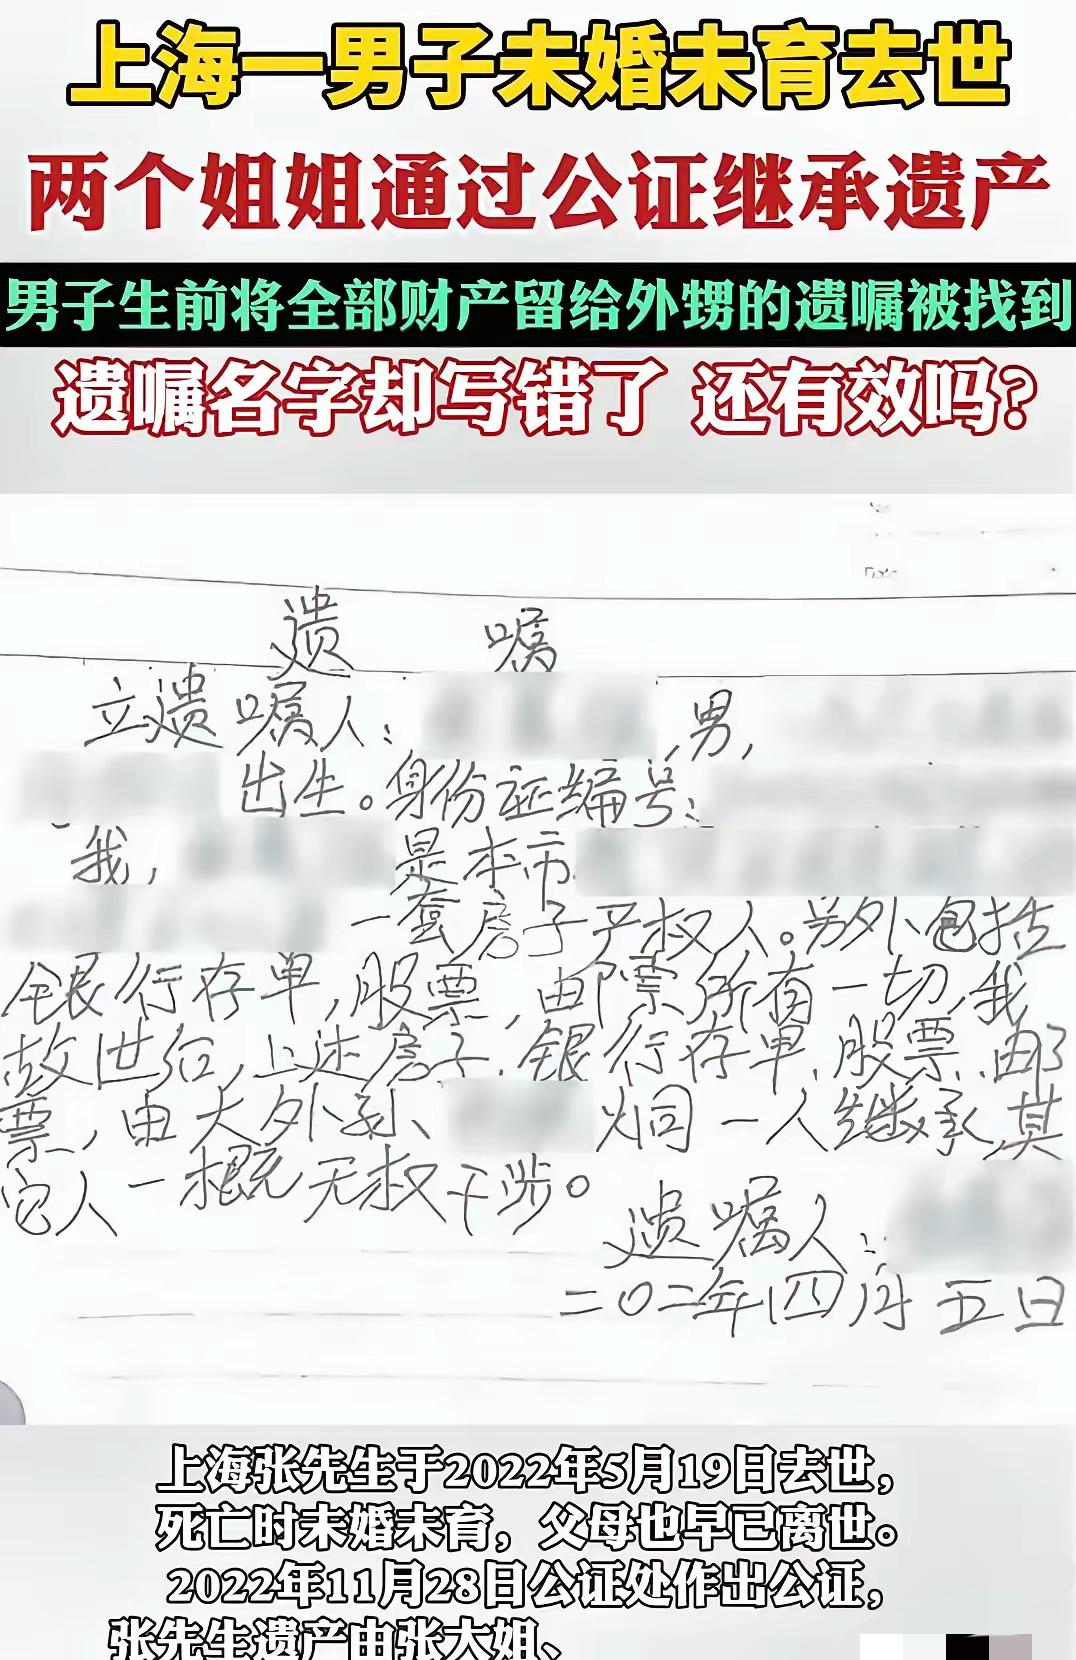 上海一男子未婚未育去世
两个姐姐通过公证继承遗产
男子生前将全部财产留给外甥的遗嘱被找到
遗嘱名字却写错了 还有效吗?
遗 嘱
立遗嘱人: ,男,
出生。身份证编号:
我, 是本市
一套房子产权人。另外包括
银行存单,股票,邮票所有一切,我
故世后,上述房子.银行存单.股票.邮
票,由大外孙、 炯一人继承,其
它人一概无权干涉。
遗嘱人:
二〇二年四月五日
上海张先生于2022年5月19日去世,
死亡时未婚未育,父母也早已离世。
2022年11月28日公证处作出公证,
张先生遗产由张大姐、